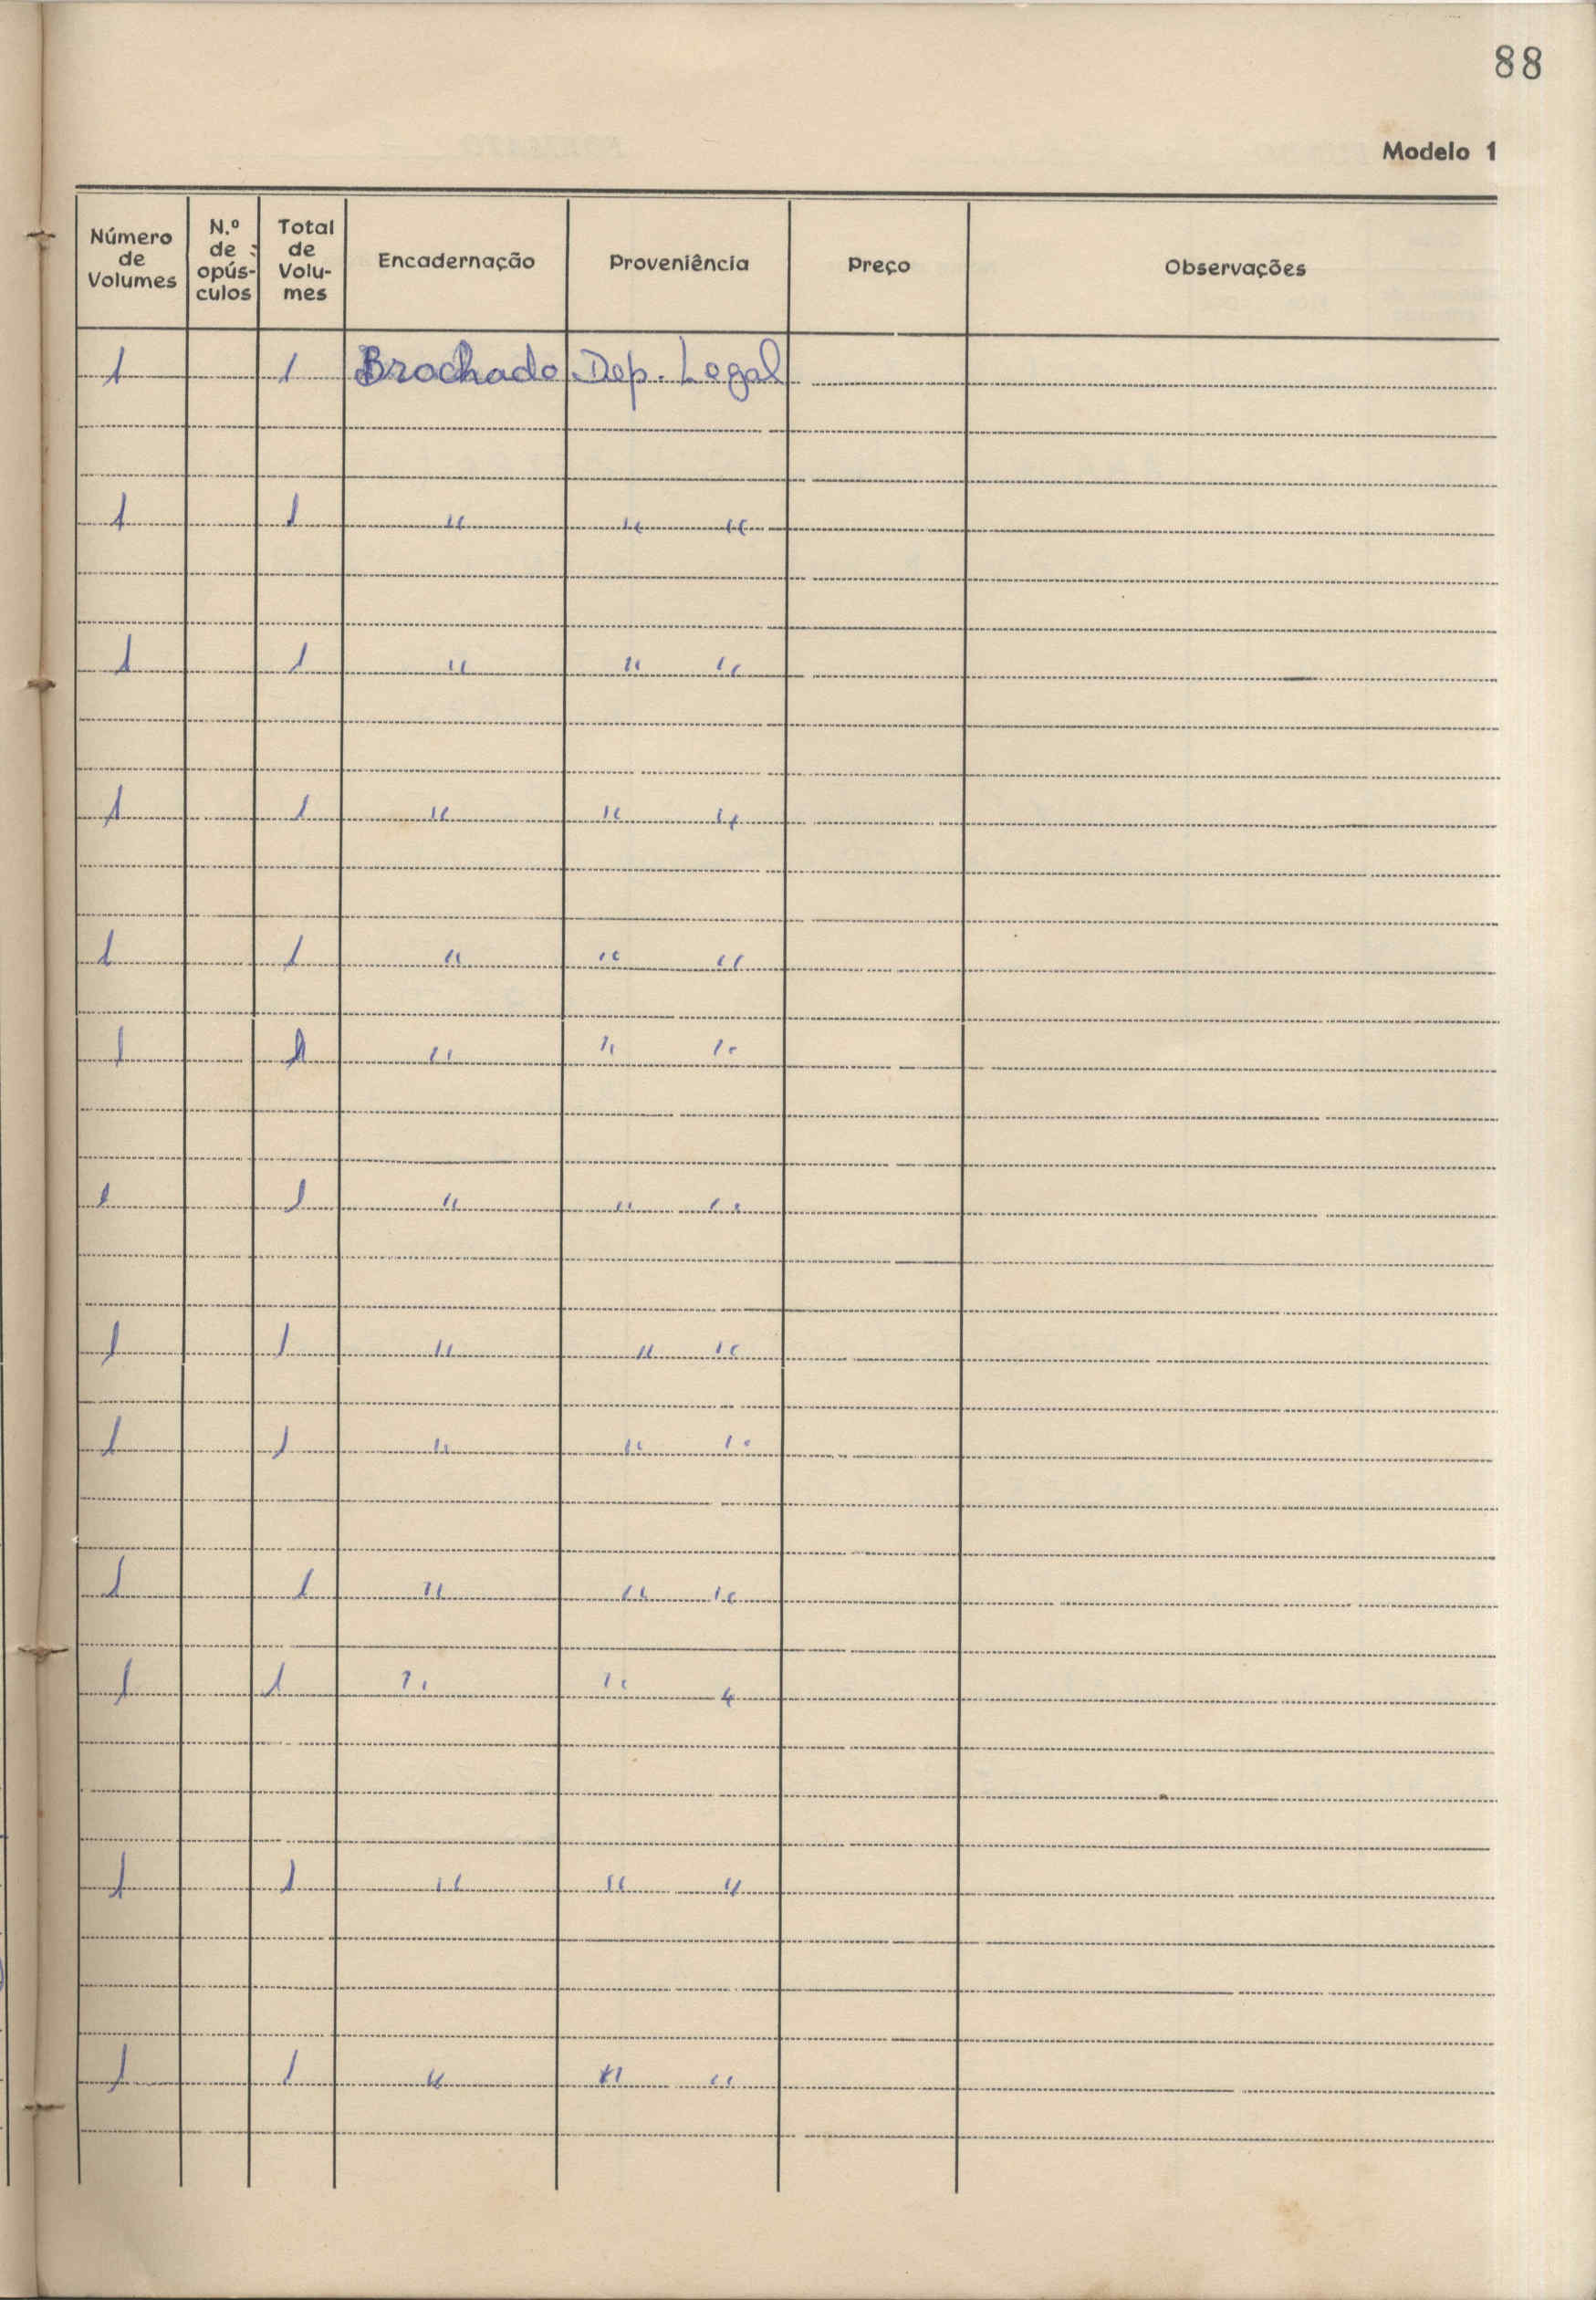 88
Modelo 1
Número de Volumes N.º de opús-culos Total de Volu-mes Encadernação Proveniência Preço Observações
1 1 Brochado Dep. Legal
1 1 " " "
1 1 " " "
1 1 " " "
1 1 " " "
1 1 " " "
1 1 " " "
1 1 " " "
1 1 " " "
1 1 " " "
1 1 " " "
1 1 " " "
1 1 " " "